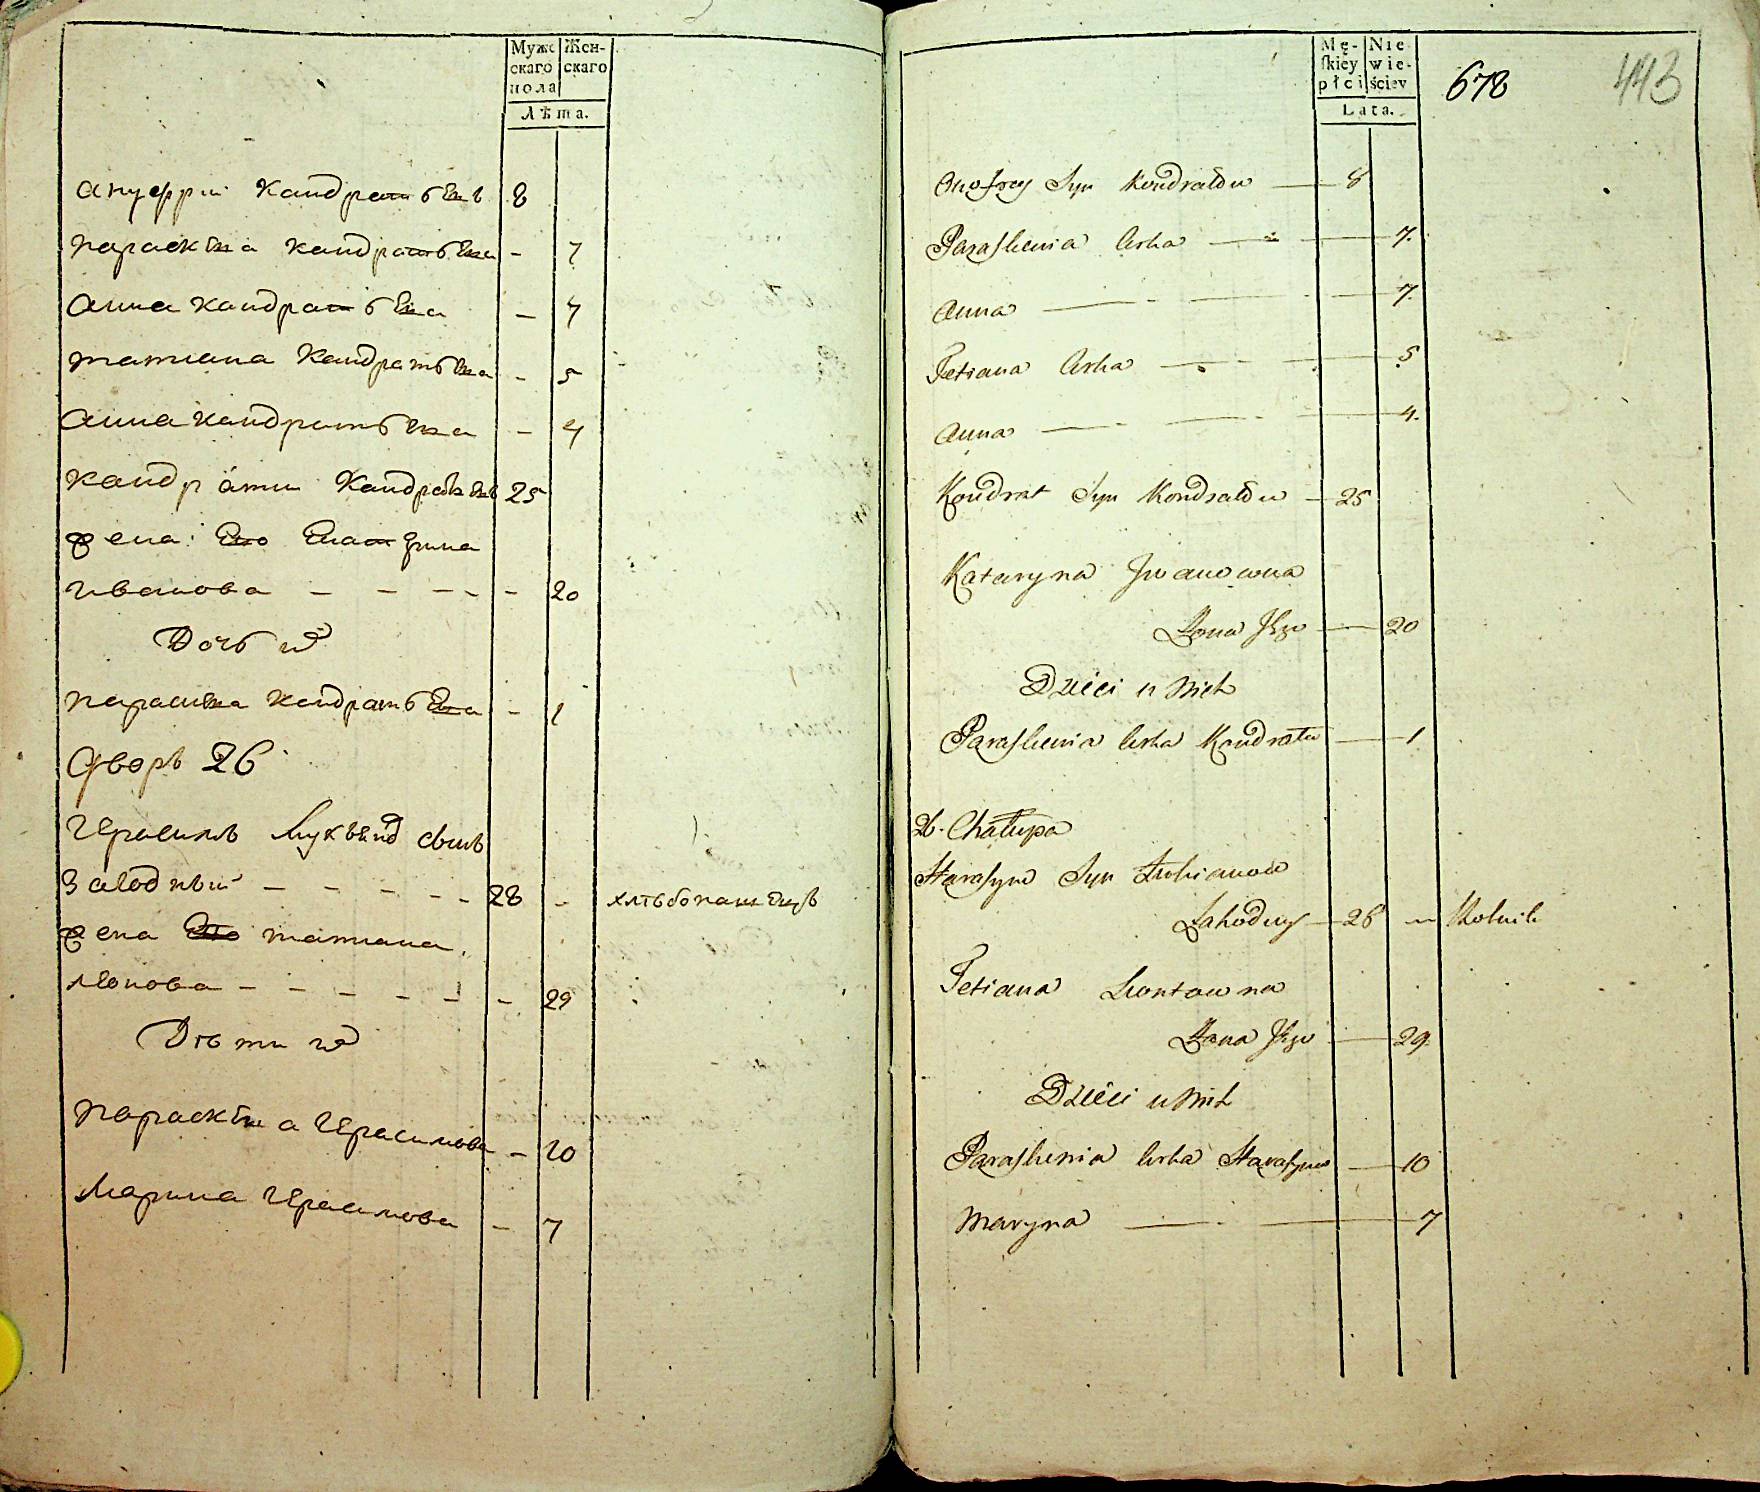 Мужескаго пола
Женскаго
Лѣта.
ануфрии Кандратьевъ 8
параскева кандратьева - 7
анна кандратьева - 7
татиана Кандратьева - 5
анна кандратьева - 4
кандратии Кандратьевъ 25
жена Его Екатерина
иванова - - - - - 20
Дочь их
параскева кандратьева - 1
Дворъ 26
Герасимъ сынъ
Загодный - - - - - 28 - хлѣбопашецъ
жена Его татиана
леонова - - - - - - 29
Дѣти их
параскева Герасимова - 10
Марина Герасимова - 7
Mę-skiey płci
Nie-wie-ściey
Lata.
678
443
Onofrey Syn Kondratow 8
Paraskewia Corka 7.
Anna 7.
Tetiana Corka 5
Anna 4.
Kondrat Syn Kondratow 25
Kataryna Iwanowna
Żona Jego 20
Dzieci u Nich
Paraskewia Corka Kondrata 1
26. Chałupa
Harasym Syn
Zahodny 28 — Rolnik
Tetiana Leontowna
Żona Jego 29.
Dzieci u Nich
Paraskewia Corka Harasyma 10
Maryna 7